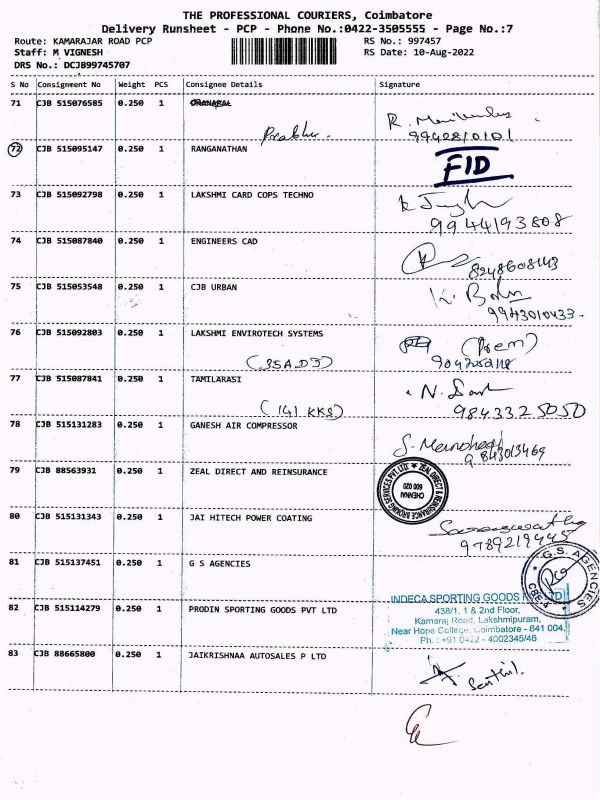 THE PROFESSIONAL COURIERS, Coimbatore
Delivery Runsheet - PCP - Phone No.:0422-3505555 - Page No.:7
Route: KAMARAJAR ROAD PCP RS No.: 997457
Staff: M VIGNESH RS Date: 10-Aug-2022
DRS No.: DCJB99745707
S No Consignment No Weight PCS Consignee Details Signature
71 CJB 515076585 0.250 1
Prabhu. 9942810101
72 CJB 515095147 0.250 1 RANGANATHAN FID
73 CJB 515092798 0.250 1 LAKSHMI CARD COPS TECHNO
9944193808
74 CJB 515087840 0.250 1 ENGINEERS CAD
8248608143
75 CJB 515053548 0.250 1 CJB URBAN
9943010433.
76 CJB 515092803 0.250 1 LAKSHMI ENVIROTECH SYSTEMS (Prem)
77 CJB 515087841 0.250 1 TAMILARASI
(141 KKS) 9843325050
78 CJB 515131283 0.250 1 GANESH AIR COMPRESSOR
9843013469
79 CJB 88563931 0.250 1 ZEAL DIRECT AND REINSURANCE
ZEAL DIRECT & REINSURANCE BROKING SERVICES PVT LTD
CHENNAI
600 020
80 CJB 515131343 0.250 1 JAI HITECH POWER COATING
9789219445
81 CJB 515137451 0.250 1 G S AGENCIES
G.S. AGENCIES
CBE-4
82 CJB 515114279 0.250 1 PRODIN SPORTING GOODS PVT LTD
INDECA SPORTING GOODS LTD
438/1, 1 & 2nd Floor,
Kamaraj Road, Lakshmipuram,
Near Hope College, Coimbatore - 641 004.
Ph. : +91 0422 - 4002345/46
83 CJB 88665800 0.250 1 JAIKRISHNAA AUTOSALES P LTD
Senthil.